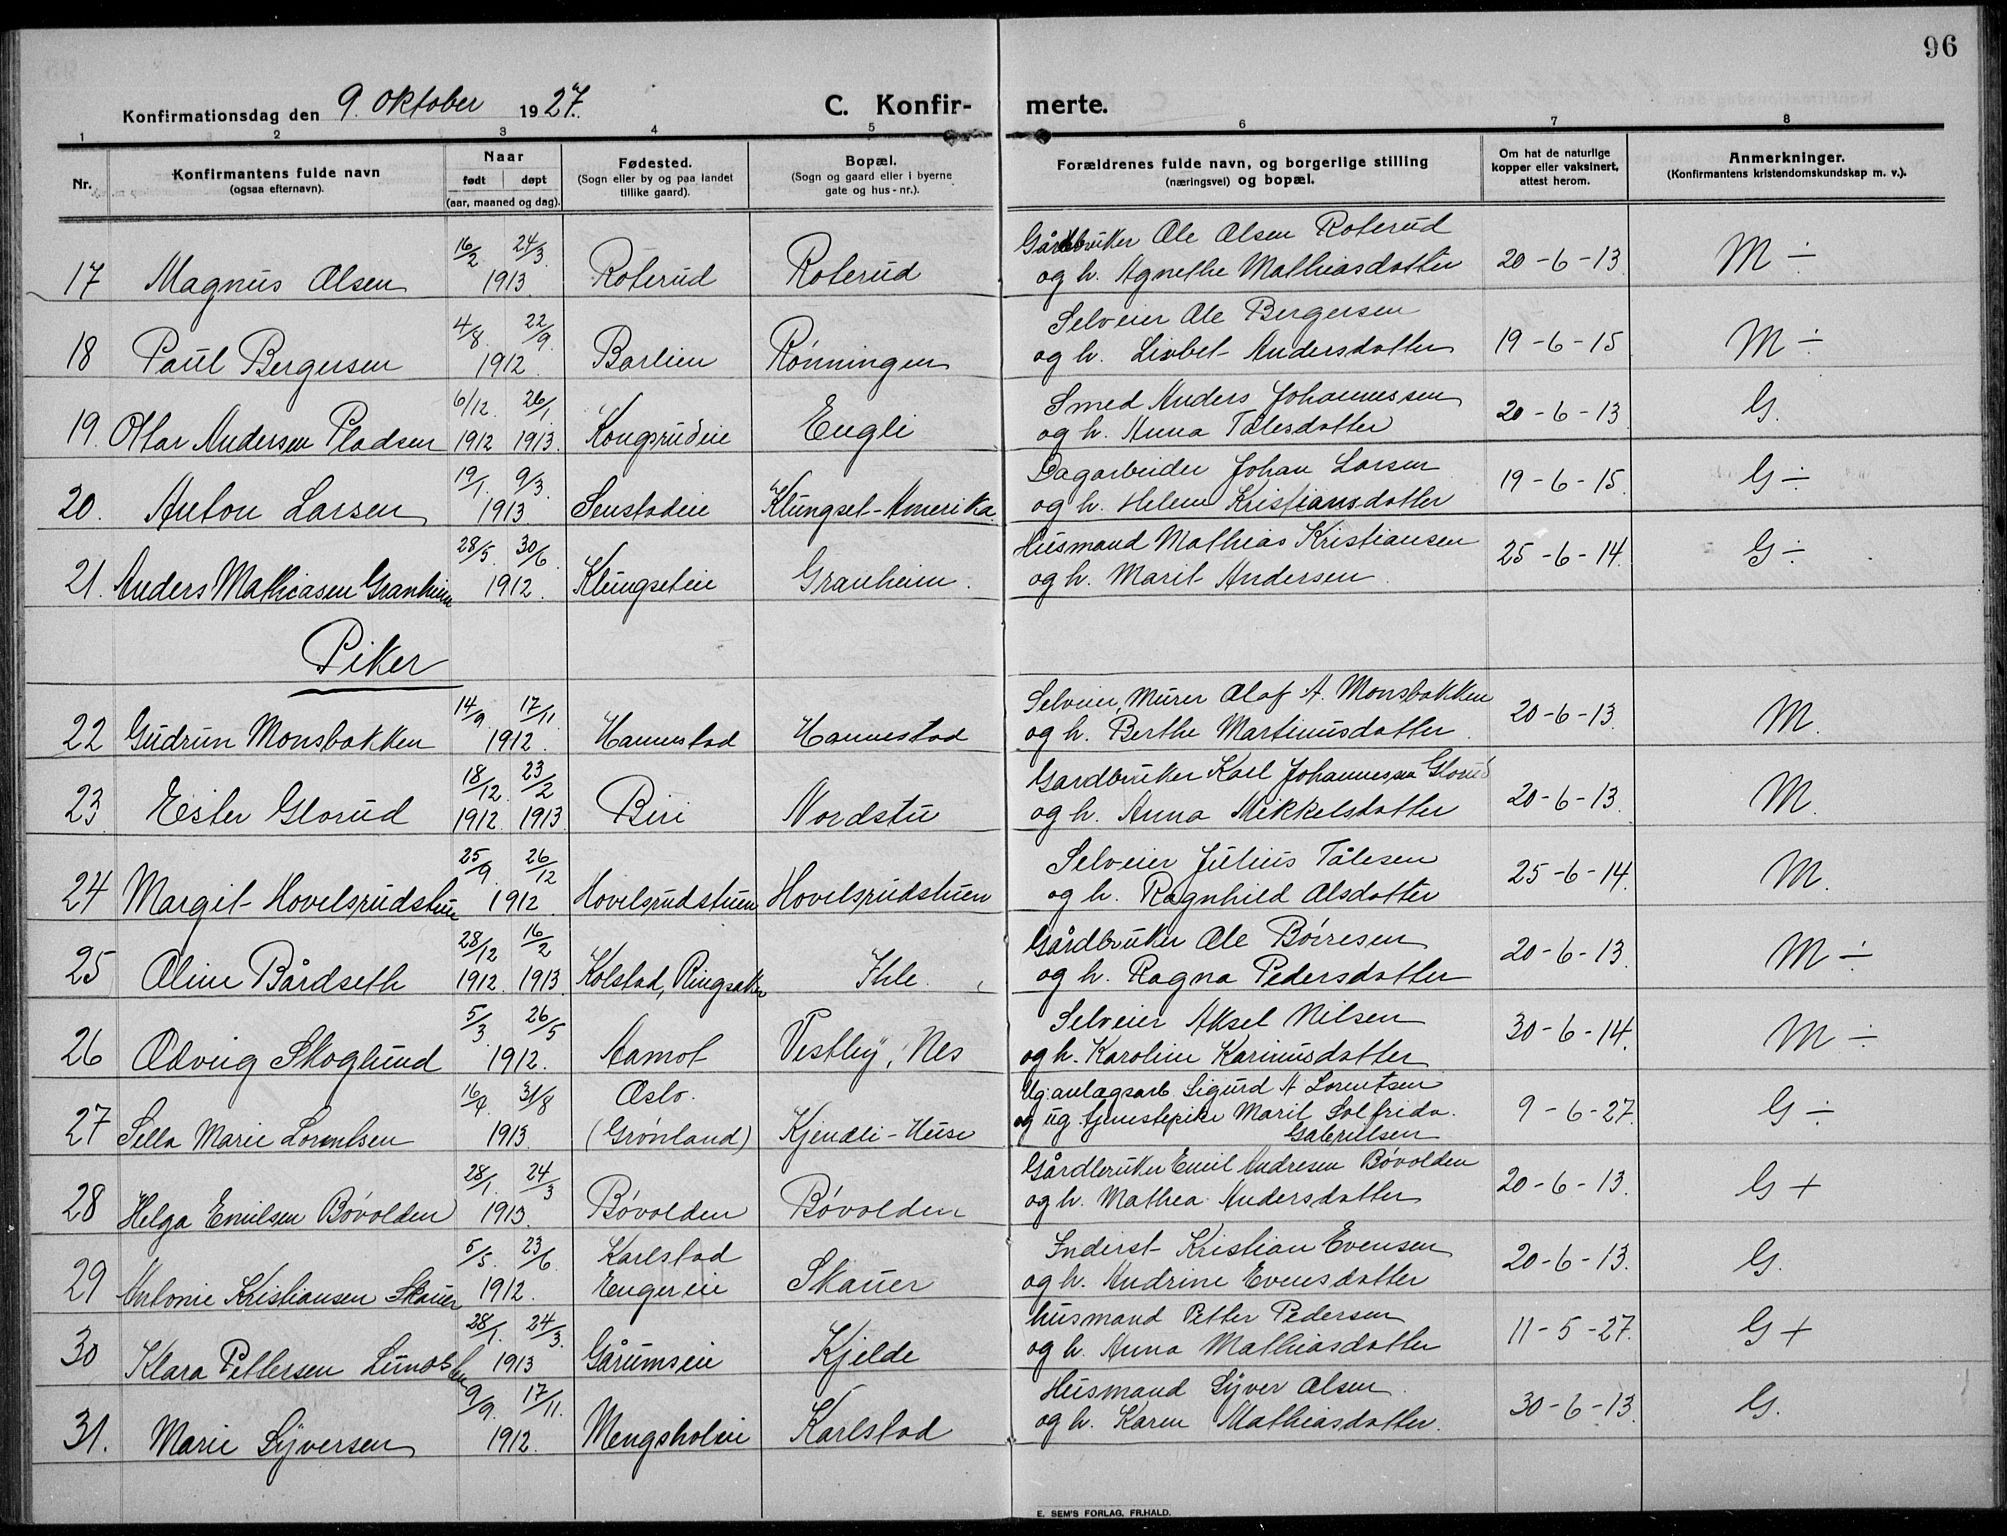 96
Konfirmationsdag den 9. oktober 1927.
C. Konfirmerte.
1 2 3 4 5 6 7 8
Nr.
Konfirmantens fulde navn
(ogsaa efternavn).
Naar
født døpt
(aar, maaned og dag).
Fødested.
(Sogn eller by og paa landet
tillike gaard).
Bopæl.
(Sogn og gaard eller i byerne
gate og hus-nr.).
Forældrenes fulde navn, og borgerlige stilling
(næringsvei) og bopæl.
Om hat de naturlige
kopper eller vaksinert,
attest herom.
Anmerkninger.
(Konfirmantens kristendomskundskap m. v.).
16/2 24/3 Gårdbruker Ole Olsen Roterud
17 Magnus Olsen 1913 Roterud Roterud og h. Agnethe Mathiasdotter 20-6-13 M ÷
4/8 22/9 Selveier Ole Bergersen
18 Paul Bergersen 1912 Barlien Rønningen og h. Lisbet Andersdotter 19-6-15 M ÷
6/12 26/1 Smed Anders Johannessen
19. Ottar Andersen Pladsen 1912 1913 Kongsrudeie Engli og h. Anna Tålesdotter 20-6-13 G.
19/1 9/3 Dagarbeider Johan Larsen
20. Anton Larsen 1913 Senstadeie Klungset-Amerika og h. Helene Kristiansdotter 19-6-15 G ÷
28/5 30/6 Husmand Mathias Kristiansen
21. Anders Mathiasen Granheim 1912 Klungseteie Granheim og h. Marit Andersen 25-6-14 G ÷
Piker
14/9 17/11 Selveier, Murer Olaf A. Monsbakken
22 Gudrun Monsbakken 1912 Hannestad Hannestad og h. Berthe Martinusdotter 20-6-13 M.
18/12 23/2 Gardbruker Karl Johannessen Glorud
23 Ester Glorud 1912 1913 Biri Nordstu og h. Anna Mikkelsdotter 20-6-13 M.
25/9 26/12 Selveier Julius Tålesen
24 Margit Hovelsrudstuen 1912 Hovelsrudstuen Hovelsrudstuen og h. Ragnhild Olsdotter 25-6-14 M.
28/12 16/2 Gårdbruker Ole Børresen
25 Oline Bårdseth 1912 1913 Kolstad, Ringsaker Ihle og h. Ragna Pedersdotter 20-6-13 M ÷
5/3 26/5 Selveier Aksel Nilsen
26 Odvig Skoglund 1912 Aamot Vestby, Nes og h. Karoline Karinusdotter 30-6-14 M ÷
16/4 31/8 Oslo. Ug. anlægsarb. Sigurd A Lorentsen
27 Sella Marie Lorentsen 1913 (Grønland) Kjendli-Huse og ug. tjenestepike Marit Solfrida 9-6-27 G ÷
Gabrielsen
28/1 24/3 Gårdbruker Emil Andresen Bøvolden
28 Helga Emilsen Bøvolden 1913 Bøvolden Bøvolden og h. Mathea Andersdotter 20-6-13 G +
5/5 23/6 Karlstad Inderst Kristian Evensen
29 Antonie Kristiansen Skauer 1912 Engereie Skauer og h. Andrine Evensdotter 20-6-13 G.
28/1 24/3 husmand Petter Pedersen
30 Klara Pettersen 1913 Gårumseie Kjelde og h. Anna Mathiasdotter 11-5-27 G +
9/9 17/11 Husmand Syver Olsen
31. Marie Syversen 1912 Mengsholeie Karlstad og h. Karen Mathiasdotter 30-6-13 G.
E. SEM'S FORLAG, FR.HALD.